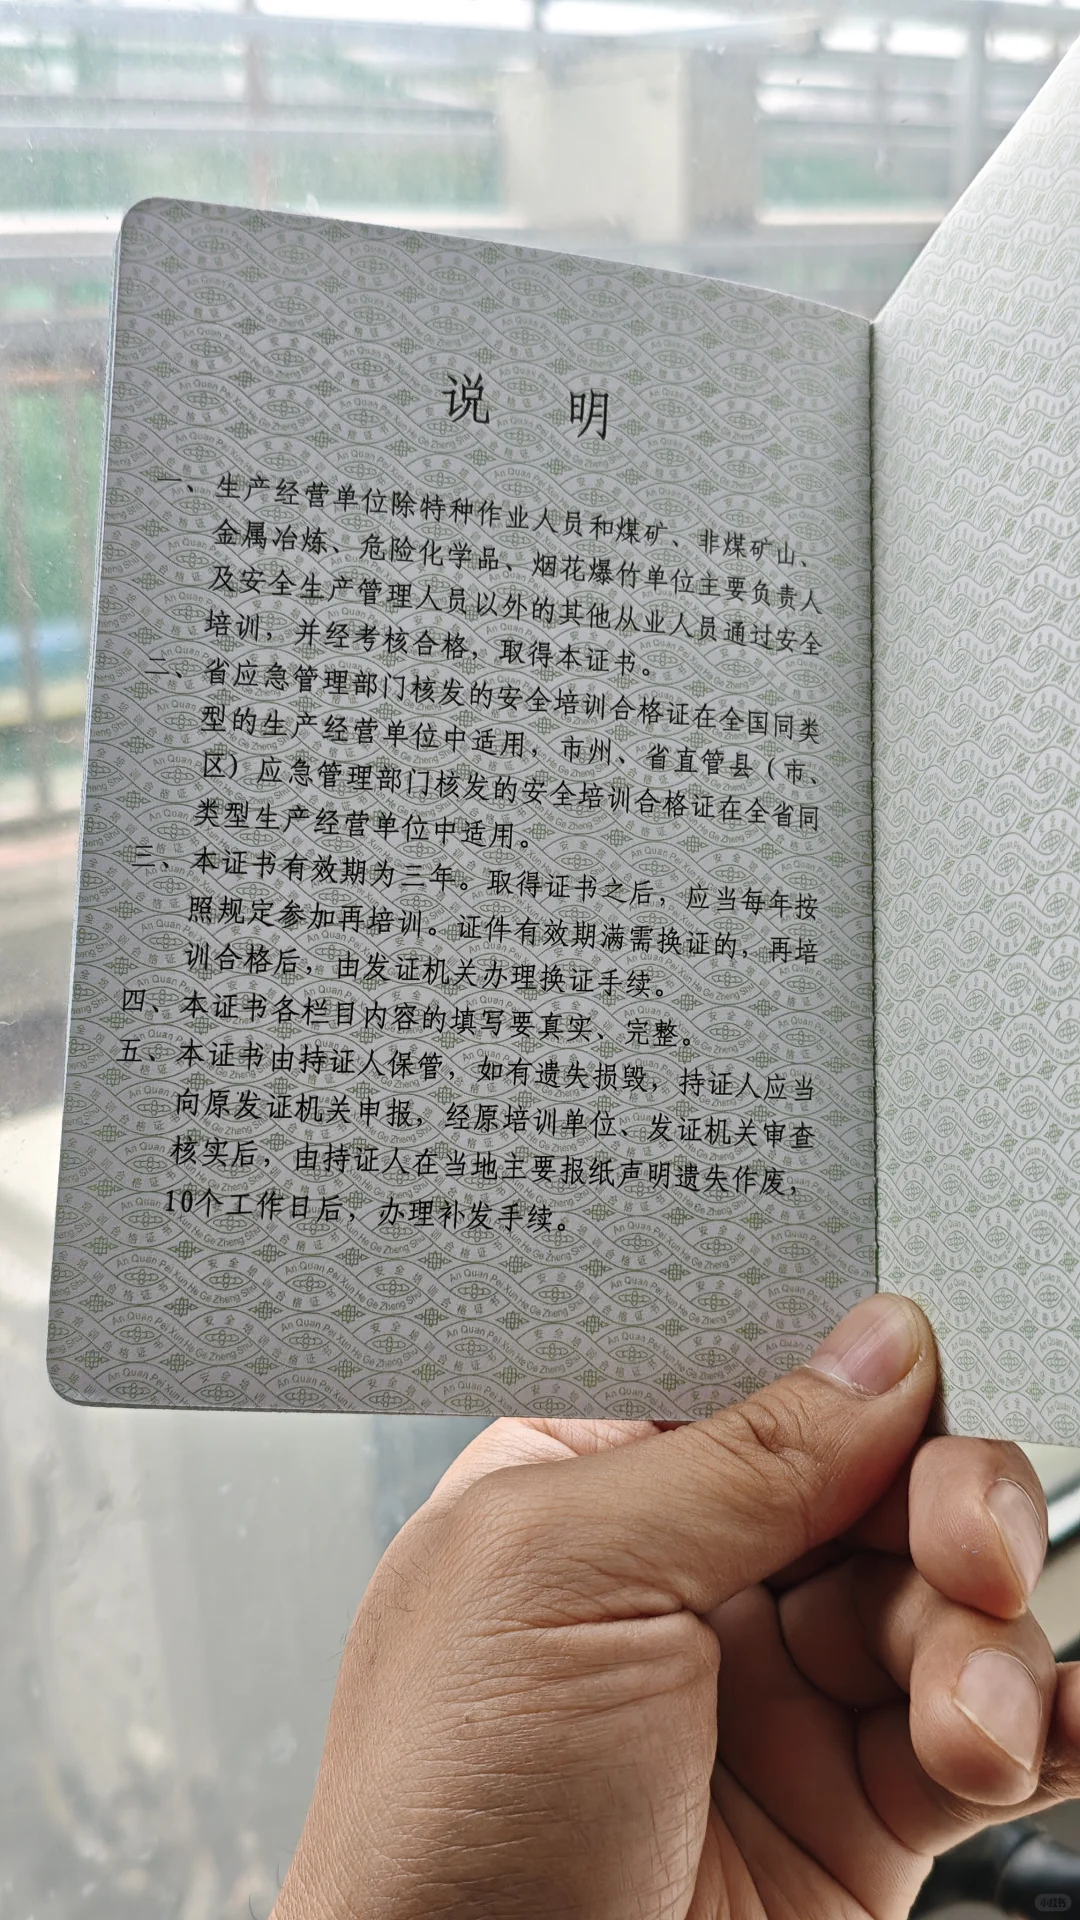 说 明
一、生产经营单位除特种作业人员和煤矿、非煤矿山、
金属冶炼、危险化学品、烟花爆竹单位主要负责人
及安全生产管理人员以外的其他从业人员通过安全
培训，并经考核合格，取得本证书。
二、省应急管理部门核发的安全培训合格证在全国同类
型的生产经营单位中适用，市州、省直管县（市、
区）应急管理部门核发的安全培训合格证在全省同
类型生产经营单位中适用。
三、本证书有效期为三年。取得证书之后，应当每年按
照规定参加再培训。证件有效期满需换证的，再培
训合格后，由发证机关办理换证手续。
四、本证书各栏目内容的填写要真实、完整。
五、本证书由持证人保管，如有遗失损毁，持证人应当
向原发证机关申报，经原培训单位、发证机关审查
核实后，由持证人在当地主要报纸声明遗失作废，
10个工作日后，办理补发手续。
小红书